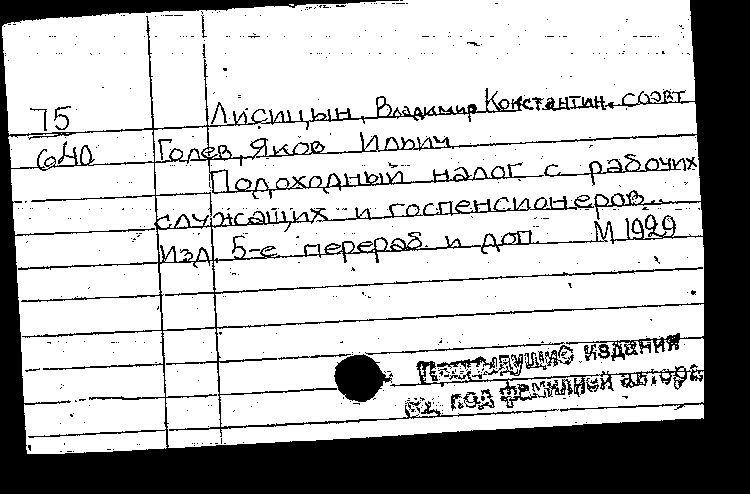 75 Лисицын, Владимир Константин. соавт
640 Голев, Яков Ильич
Подоходный налог с рабочих
служащих и госпенсионеров...
Изд. 5-е перераб. и доп. М 1929
Предыдущие издания
см. под фамилией автора